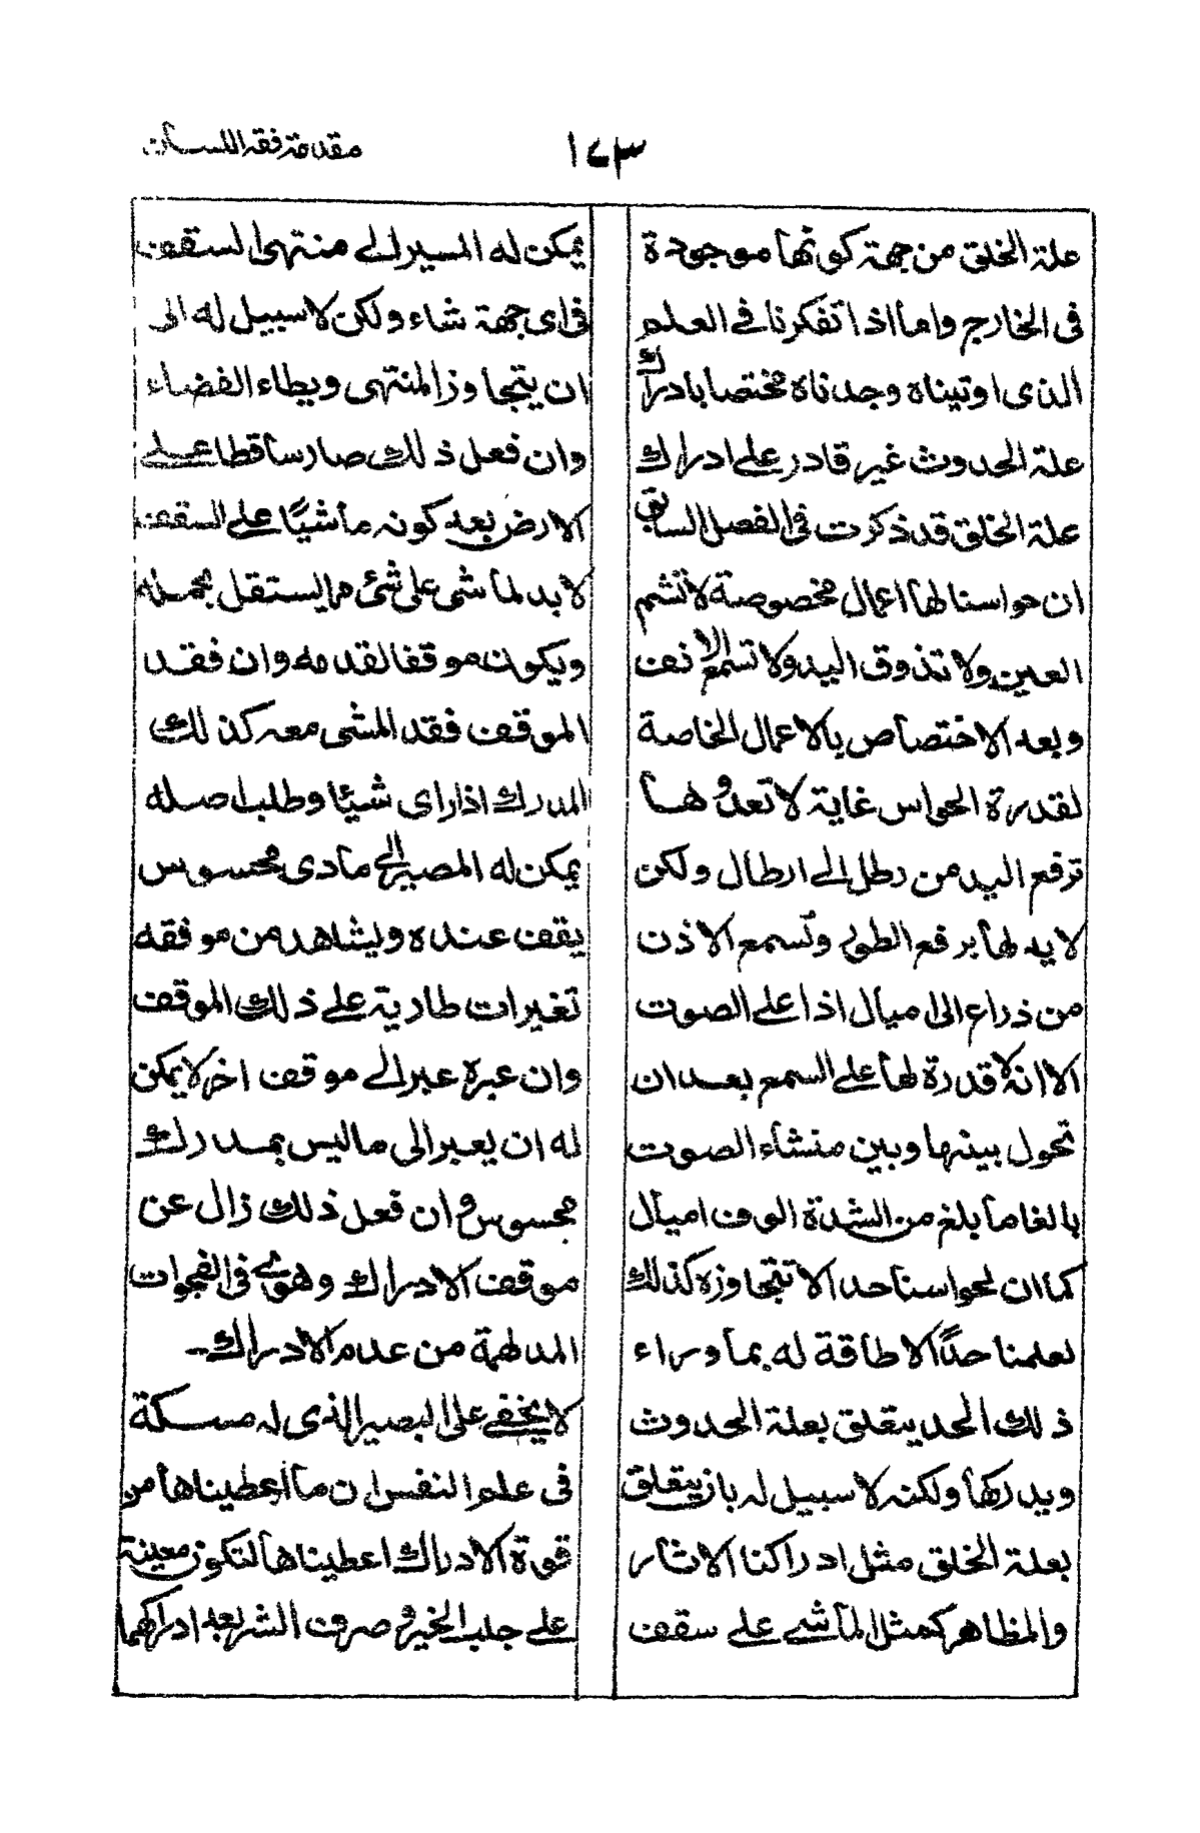 ١٤٣
مقدمة فقه اللسان
علة الخلق من جهة كونها موجودة
فى الخارج واما اذا تفكرنا فے العلم
الذى اوتيناه وجدناه مختصا بادراك
علة الحدوث غير قادر على ادراك
علة الخلق قد ذكرت فى الفصل السابق
ان حواسنا لها اعمال مخصوصة لا تشم
العين ولا تذوق اليد ولا تسمع الانف
وبعد الاختصاص بالاعمال الخاصة
لقدرة الحواس غاية لا تعدوها
ترفع اليد من رطل الى ارطال ولكن
لا يد لها برفع الطور وتسمع الاذن
من ذراع الى اميال اذا على الصوت
الا انه لا قدرة لها على السمع بعد ان
تحول بينها وبين منشاء الصوت
بالغا ما بلغ من الشدة الوف اميال
كما ان لحواسنا حدا لا تتجاوزه كذلك
لعلمنا حدًّا لا طاقة له بما وراء
ذلك الحد يتعلق بعلة الحدوث
ويدركها ولكنه لا سبيل له بان يتعلق
بعلة الخلق مثل ادراكنا الاثار
والمظاهر كمثل الماشے علے سقف
يمكن له المسير الے منتهى السقف
فى اى جهة شاء ولكن لا سبيل له الى
ان يتجاوز المنتهى ويطاء الفضاء
وان فعل ذلك صار ساقطا علے
الارض بعد كونه ماشيًا علے السقف
لا بد لماشى على شئ مما يستقل بحمله
ويكون موقفا لقدمه وان فقد
الموقف فقد المشى معه كذلك
المدرك اذا راى شيئا وطلب اصله
يمكن له المصير الے مادى محسوس
يقف عنده ويشاهد من موقفه
تغيرات طارية علے ذلك الموقف
وان عبره عبر الے موقف اخر لا يمكن
له ان يعبر الى ما ليس بمدرك
محسوس وان فعل ذلك زال عن
موقف الادراك وهوے فى الفجوات
المدلهمة من عدم الادراك ــ
لا يخفے على البصير الذى له مسكة
فى علم النفس ان ما اعطيناها من
قوة الادراك اعطيناها لتكون معينة
علے جلب الخير وصرف الشر بعد ادراكهما